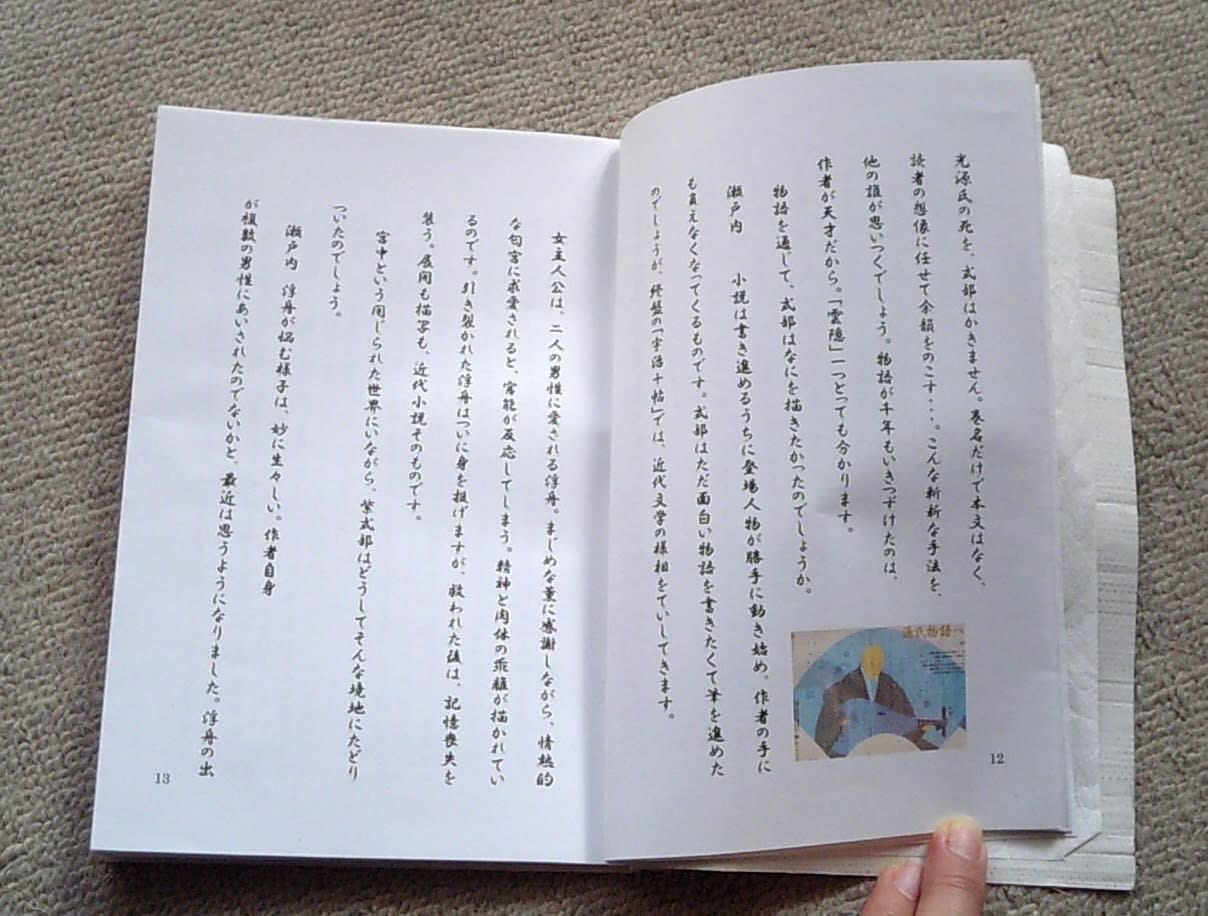 光源氏の死を、式部はかきません。巻名だけで本文はなく、
読者の想像に任せて余韻をのこす・・・。こんな斬新な手法を、
他の誰が思いつくでしょう。物語が千年もいきつずけたのは、
作者が天才だから。「雲隠」一つとっても分かります。
物語を通して、式部はなにを描きたかったのでしょうか。
瀬戸内 小説は書き進めるうちに登場人物が勝手に動き始め、作者の手に
も負えなくなってくるものです。式部はただ面白い物語を書きたくて筆を進めた
のでしょうが、終盤の「宇治十帖」では、近代文学の様相をていしてきます。
源氏物語へ
12
女主人公は、二人の男性に愛される浮舟。まじめな薫に感謝しながら、情熱的
な匂宮に求愛されると、官能が反応してしまう。精神と肉体の乖離が描かれてい
るのです。引き裂かれた浮舟はついに身を投げますが、救われた後は、記憶喪失を
装う。展開も描写も、近代小説そのものです。
宮中という閉じられた世界にいながら、紫式部はどうしてそんな境地にたどり
ついたのでしょう。
瀬戸内 浮舟が悩む様子は、妙に生々しい。作者自身
が複数の男性にあいされたのでないかと、最近は思うようになりました。浮舟の出
13